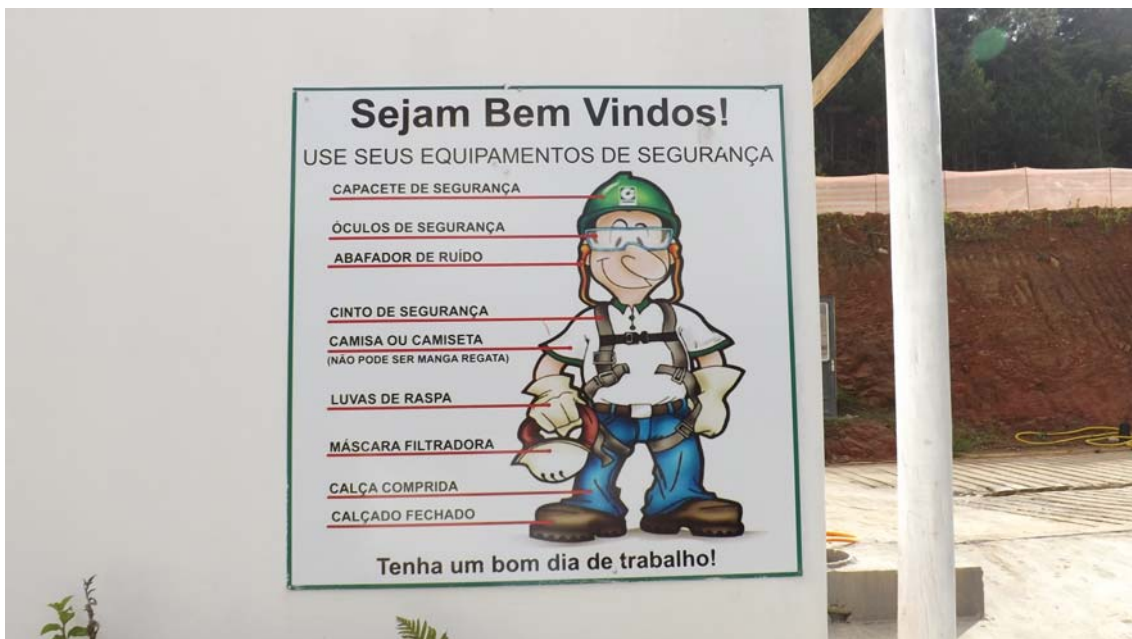 Sejam Bem Vindos!
USE SEUS EQUIPAMENTOS DE SEGURANÇA
CAPACETE DE SEGURANÇA
ÓCULOS DE SEGURANÇA
ABAFADOR DE RUÍDO
CINTO DE SEGURANÇA
CAMISA OU CAMISETA
(NÃO PODE SER MANGA REGATA)
LUVAS DE RASPA
MÁSCARA FILTRADORA
CALÇA COMPRIDA
CALÇADO FECHADO
Tenha um bom dia de trabalho!